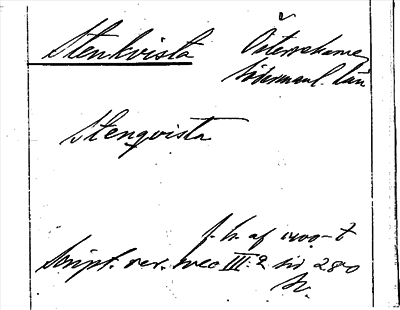 Stenkvista Österrekarne
Södermanl. län
Stenqvista
f. h. af 1400-t
Script. rer. svec III:2 sid 280